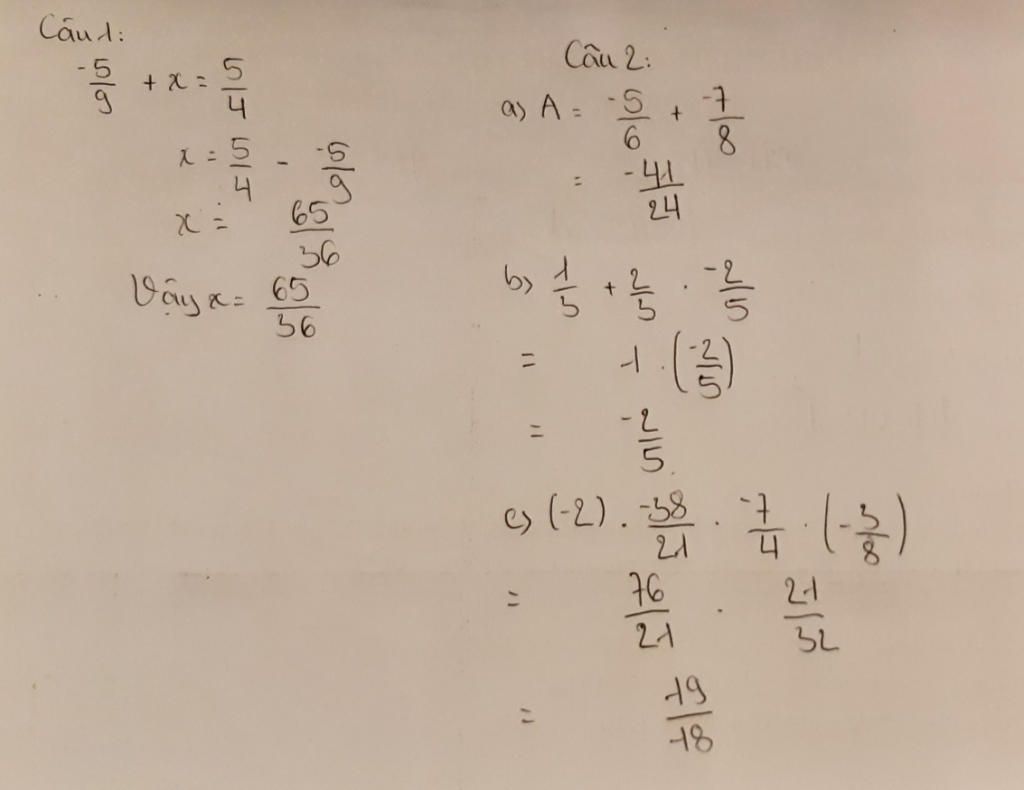 Câu 1:
-5/9 + x = 5/4
x = 5/4 - -5/9
x = 65/36
Vậy x = 65/36
Câu 2:
a) A = -5/6 + -7/8
= -41/24
b) 1/3 + 2/3 . -2/5
= 1 . (-2/5)
= -2/5
c) (-2) . -38/21 . -7/4 . (-3/8)
= 76/21 . 21/32
= 19/18